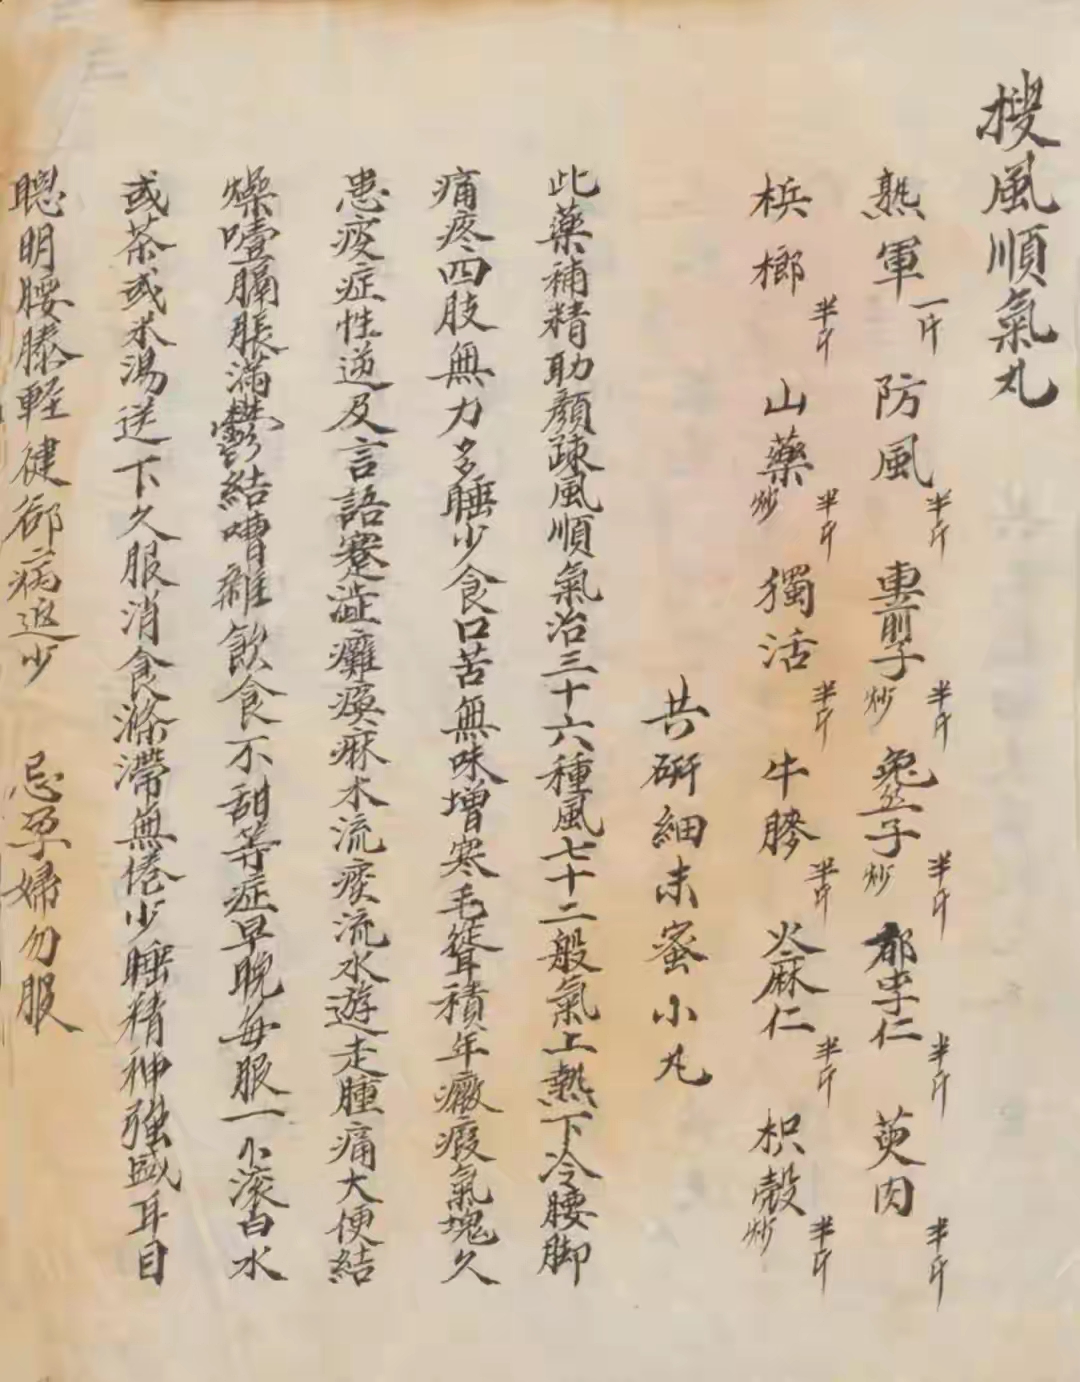 搜風順氣丸
熟軍一斤 防風半斤 車前子炒半斤 兔絲子炒半斤 郁李仁半斤 萸肉半斤
梹榔半斤 山藥炒半斤 獨活半斤 牛膝半斤 火麻仁半斤 枳殼炒半斤
共研細末蜜小丸
此藥補精助顏疎風順氣治三十六種風七十二般氣上熱下冷腰脚
痛疼四肢無力多睡少食口苦無味增寒毛聳積年癥瘕氣塊久
患疫症性逆及言語蹇澁癱瘓麻木流痰流水遊走腫痛大便結
燥噎膈脹滿鬱結嘈雜飲食不甜等症早晚每服一小滚白水
或茶或米湯送下久服消食滌滯無倦少睡精神強盛耳目
聰明腰膝輕健卻病返少 忌孕婦勿服